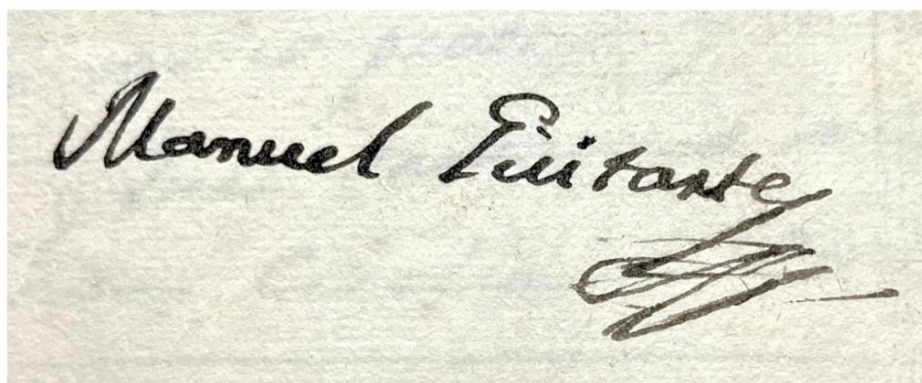 Manuel Guitarte